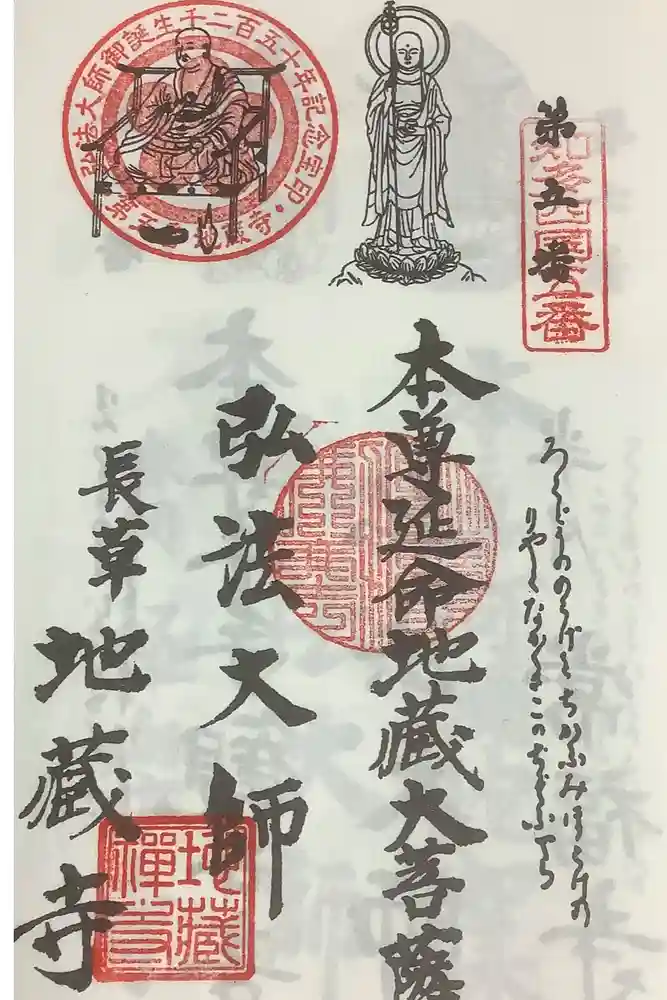 第五番
知多四国五番
ろくどうののうげとちかふみほとけの
りやくながくさこの
本尊延命地蔵大菩薩
弘法大師
長草
地蔵寺
弘法大師御誕生千二百五十年記念宝印・
第五 蔵寺
地藏禪寺